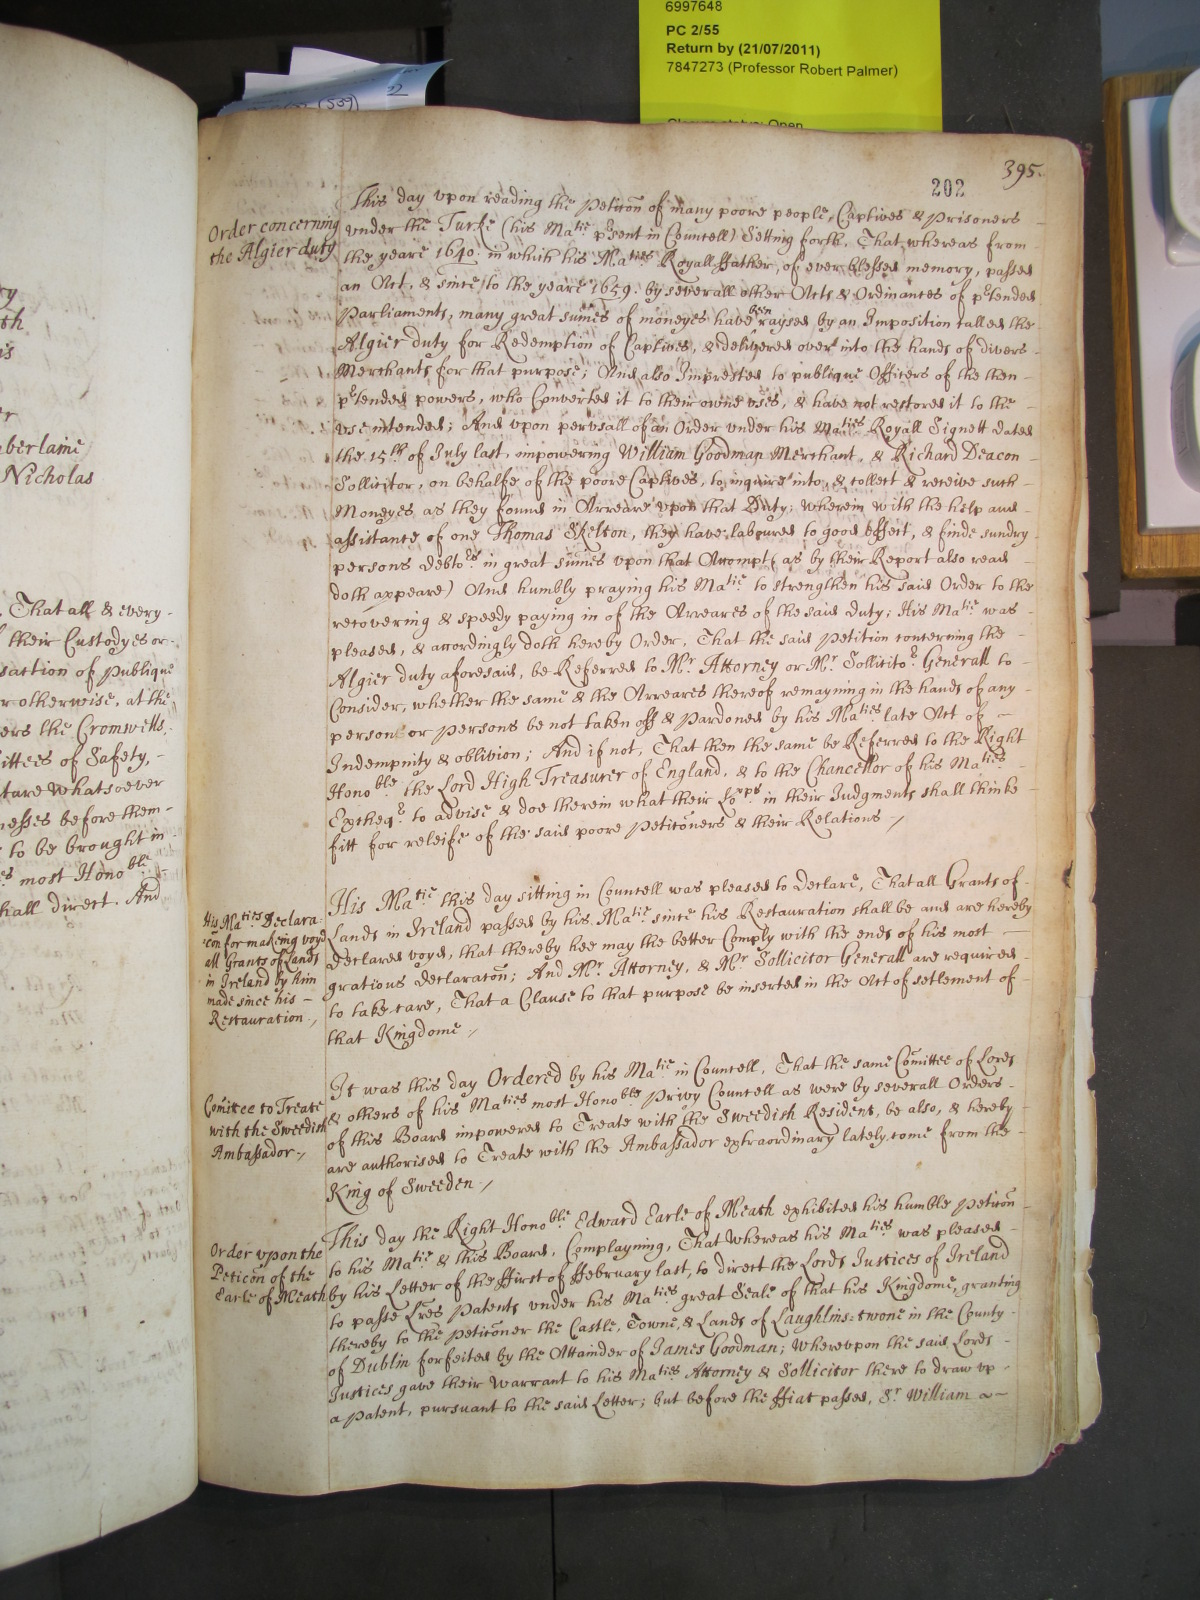 6997648
PC 2/55
Return by (21/07/2011)
7847273 (Professor Robert Palmer)
(539)
395.
202
Order concerning
the Algier duty
This day vpon reading the Peticõn of many poore people, Captives & Prisoners
vnder the Turke (his Matie prsent in Councell) Setting forth, That whereas from
the yeare 1640. in which his Maties Royall ffather, of ever blessed memory, passed
an Act, & since to the yeare 1659. by severall other Acts & Ordinances of prtended
Parliaments, many great sumes of moneyes have been raysed by an Imposition called the
Algier duty for Redemption of Captives, & delivered over into the hands of divers
Merchants for that purpose; And also Imprested to publique Officers of the then
prtended powers, who Converted it to their owne vses, & have not restored it to the
vse intended; And vpon perusall of an Order vnder his Maties Royall Signett dated
the 15th of July last, impowering William Goodman Merchant, & Richard Deacon
Sollicitor, on behalfe of the poore Captives, to inquire into, & collect & receive such
Moneyes as they found in Arreare vpon that Duty; wherein with the help and
assistance of one Thomas Skelton, they have laboured to good effect, & finde sundry
persons debtors in great sumes vpon that Accompt (as by their Report also read
doth appeare) And humbly praying his Matie to strengthen his said Order to the
recovering & speedy paying in of the Arreares of the said duty; His Matie was
pleased, & accordingly doth hereby Order, That the said Petition concerning the
Algier duty aforesaid, be Referred to Mr. Attorney or Mr. Sollicitor Generall to
Consider, whether the same & the Arreares thereof remayning in the hands of any
person or persons be not taken off & Pardoned by his Maties late Act of
Indempnity & oblivion; And if not, That then the same be Referred to the Right
Honoble the Lord High Treasurer of England, & to the Chancellor of his Maties
Excheqr. to advise & doe therein what their Lopps in their Judgments shall thinke
fitt for releife of the said poore Petitõners & their Relations ./
His Maties Declara-
con for making voyd
all Grants of Lands
in Ireland by him
made since his
Restauration ./
His Matie this day sitting in Councell was pleased to Declare, That all Grants of
Lands in Ireland passed by his Matie since his Restauration shall be and are hereby
declared voyd, that thereby hee may the better Comply with the ends of his most
gratious declaratõn; And Mr. Attorney, & Mr. Sollicitor Generall are required
to take care, That a Clause to that purpose be inserted in the Act of setlement of
that Kingdome ./
Comittee to Treate
with the Sweedish
Ambassador ./
It was this day Ordered by his Matie in Councell, That the same Comittee of Lords
& others of his Maties most Honoble Privy Councell as were by severall Orders
of this Board impowered to Treate with the Sweedish Resident, be also, & hereby
are authorised to Treate with the Ambassador extraordinary lately come from the
King of Sweeden ./
Order vpon the
Peticõn of the
Earle of Meath
This day the Right Honoble Edward Earle of Meath exhibited his humble Peticõn
to his Matie & this Board, Complayning, That whereas his Matie was pleased
by his Letter of the ffirst of ffebruary last, to direct the Lords Justices of Ireland
to passe Lres Patents vnder his Maties great Seale of that his Kingdome, granting
thereby to the petitõner the Castle, Towne, & Lands of Laughlins-towne in the County
of Dublin forfeited by the Attainder of James Goodman; Wherevpon the said Lords
Justices gave their warrant to his Maties Attorney & Sollicitor there to draw vp
a Patent, pursuant to the said Letter; but before the ffiat passed, Sr. William
berlaine
Nicholas
That all & every
their Custodyes or
saction of Publique
or otherwise, at the
ers the Cromwells.
ittees of Safety,
ture whatsoever
nesses before them
to be brought in
most Honoble
hall direct. And